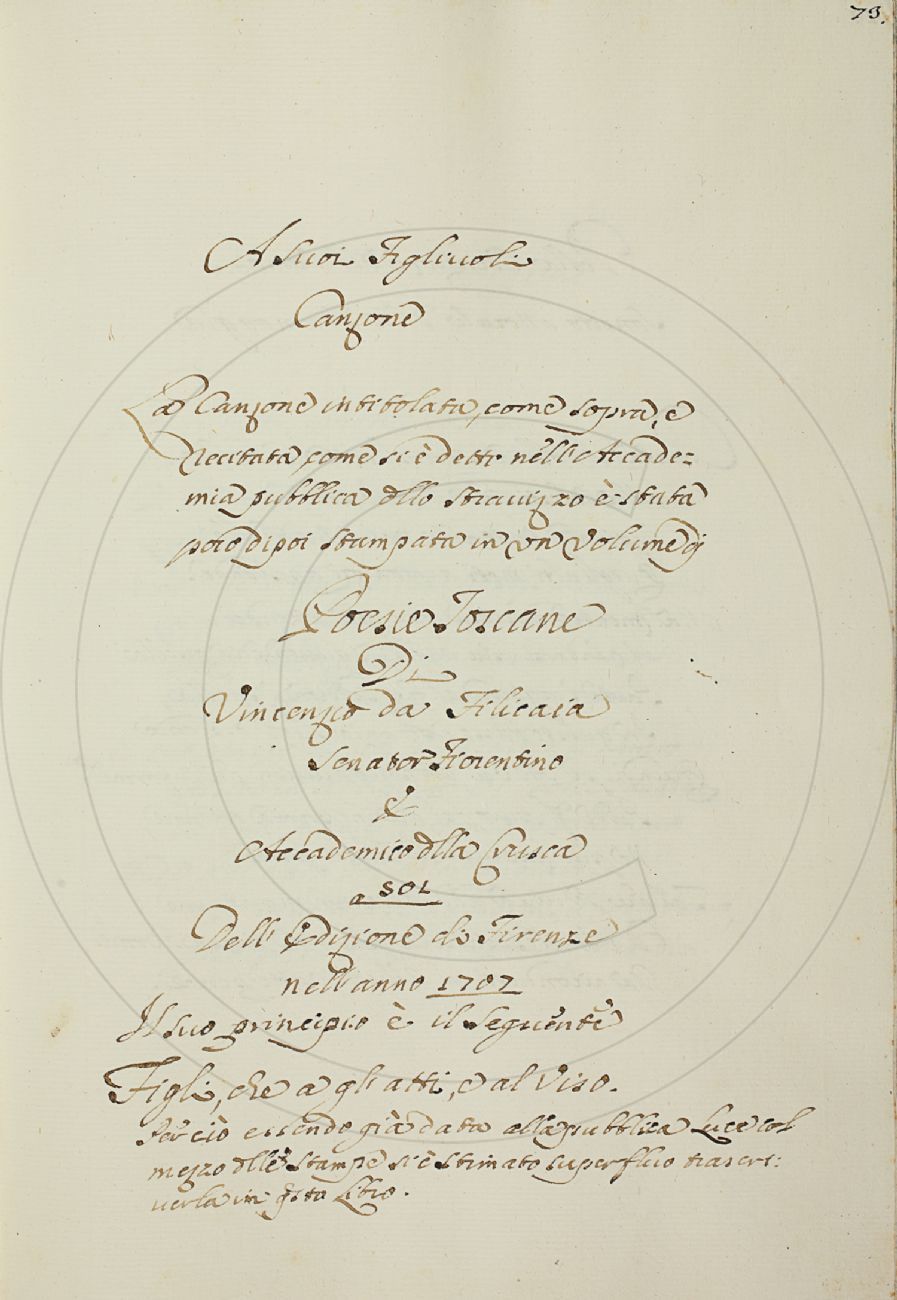 73.
A Suoi Figliuoli
Canzone
La Canzone intitolata, come sopra, e
Recitata come si è detto nell'Accade=
mia pubblica dllo Stravizzo è stata
poco dipoi Stampata in un Volume di
Poesie Toscane
Di
Vincenzo da Filicaia
Senator Fiorentino
&
Accademico dlla Crusca
a SOL
Dell'Edizione di Firenze
nell'anno 1707
Il suo principio è il seguente
Figli, che a gli atti, e al Viso.
Perciò essendo già data alla pubblica Luce col
mezzo dlle Stampe si è Stimato superfluo trascri:
verla in qsto Libro.